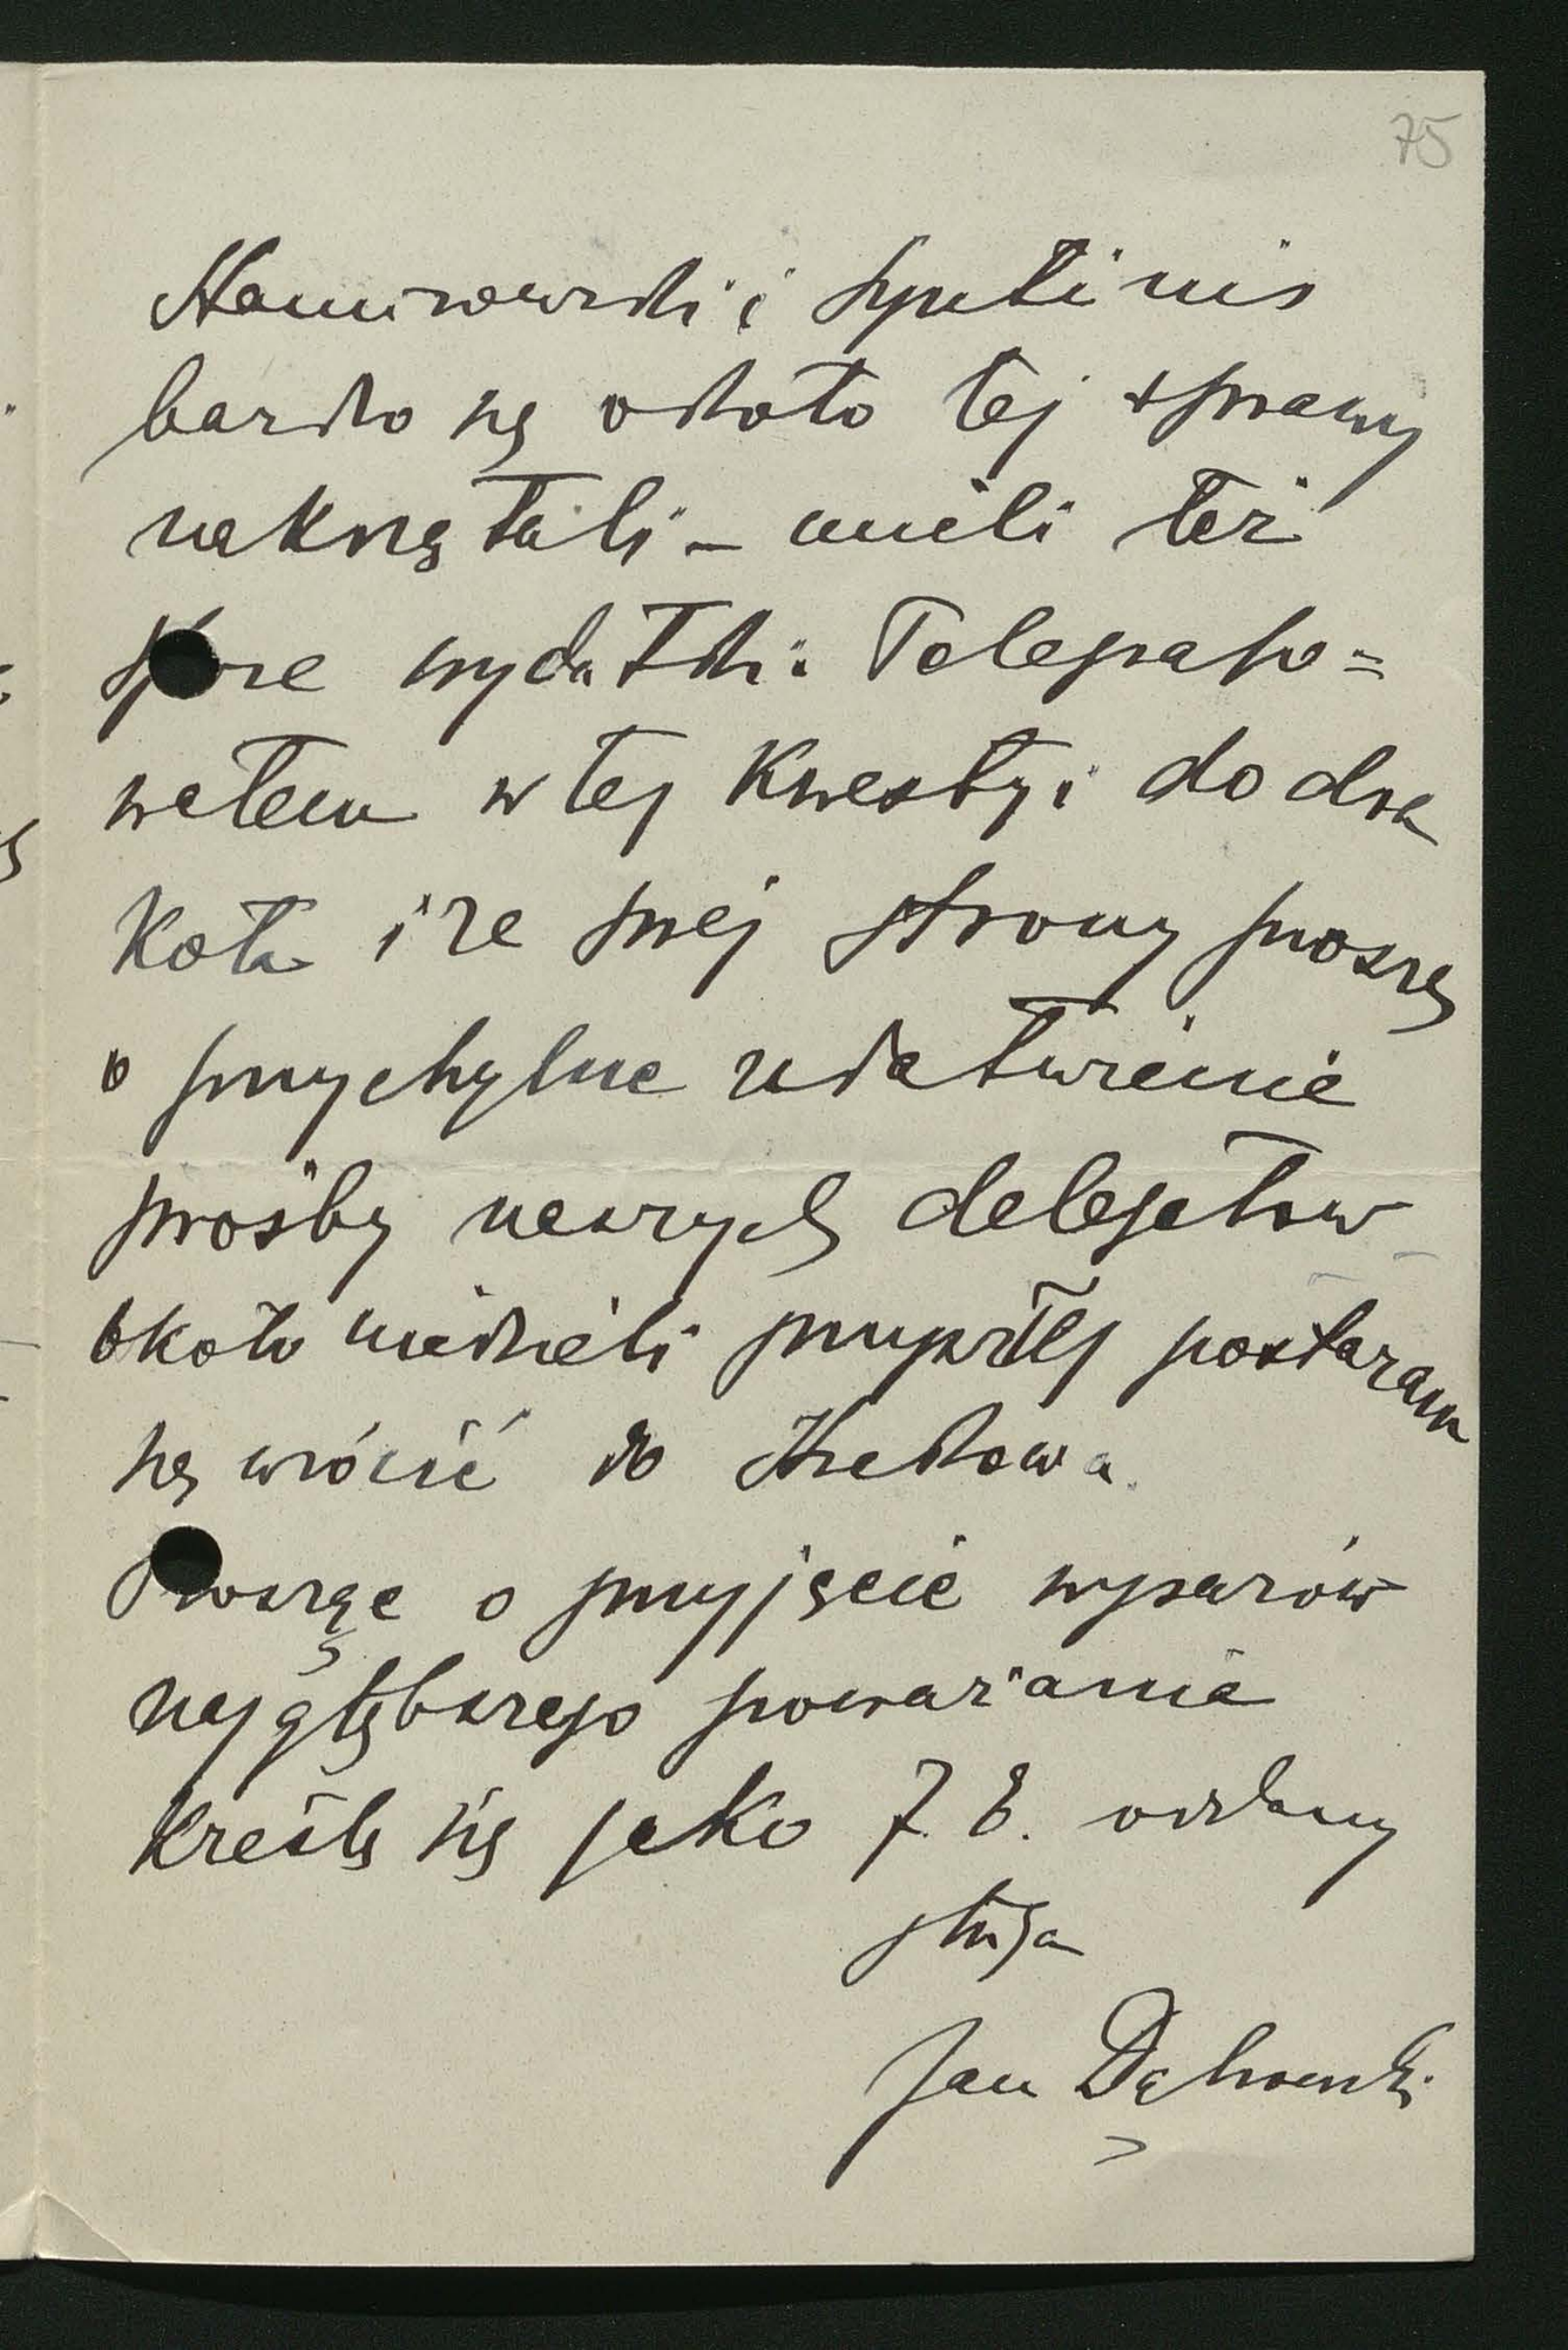 75
i
bardzo się około tej sprawy
zakrzątali – mieli też
wydatki. Telegrafo=
wałem w tej kwestyi do dra
Kota i ze swej strony proszę
o przychylne załatwienie
prośby naszych delegatów
około niedzieli przyszłej postaram
się wrócić do Krakowa.
Prosząc o przyjęcie wyrazów
najgłębszego poważania
kreślę się jako oddany
sługa
Jan Dąbrowski